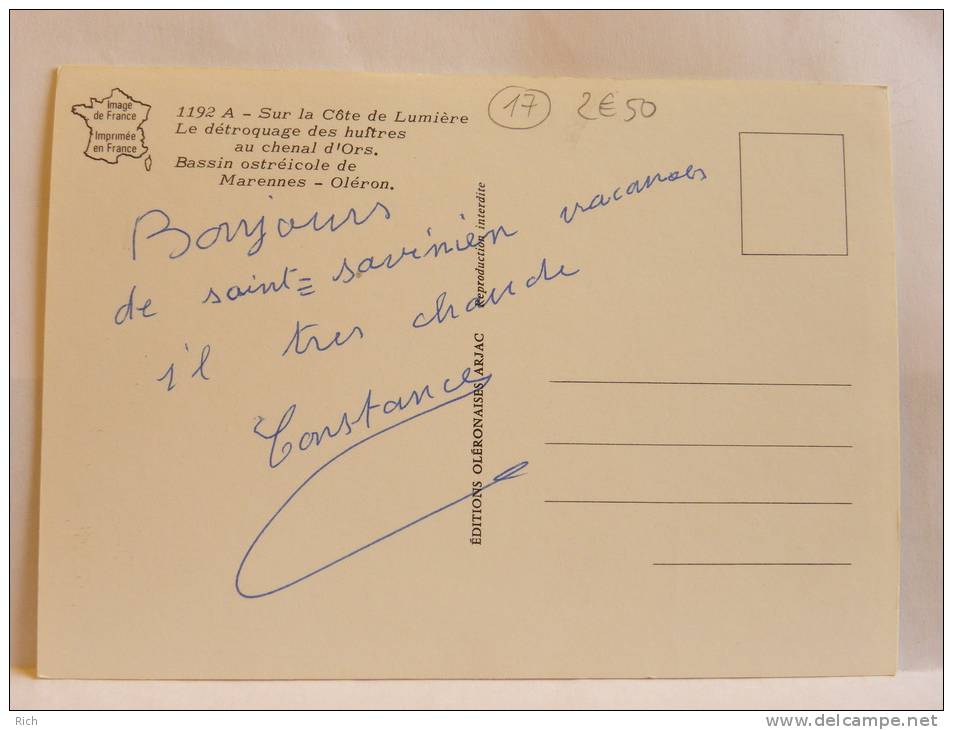 Image
de France
Imprimée
en France
1192 A - Sur la Côte de Lumière
Le détroquage des huîtres
au chenal d'Ors.
Bassin ostréicole de
Marennes - Oléron.
17 2€50
Bonjours
de saint=savinien vacances
s'il tres chaude
Constance
ÉDITIONS OLÉRONAISES ARJAC Reproduction interdite
Rich
www.delcampe.net